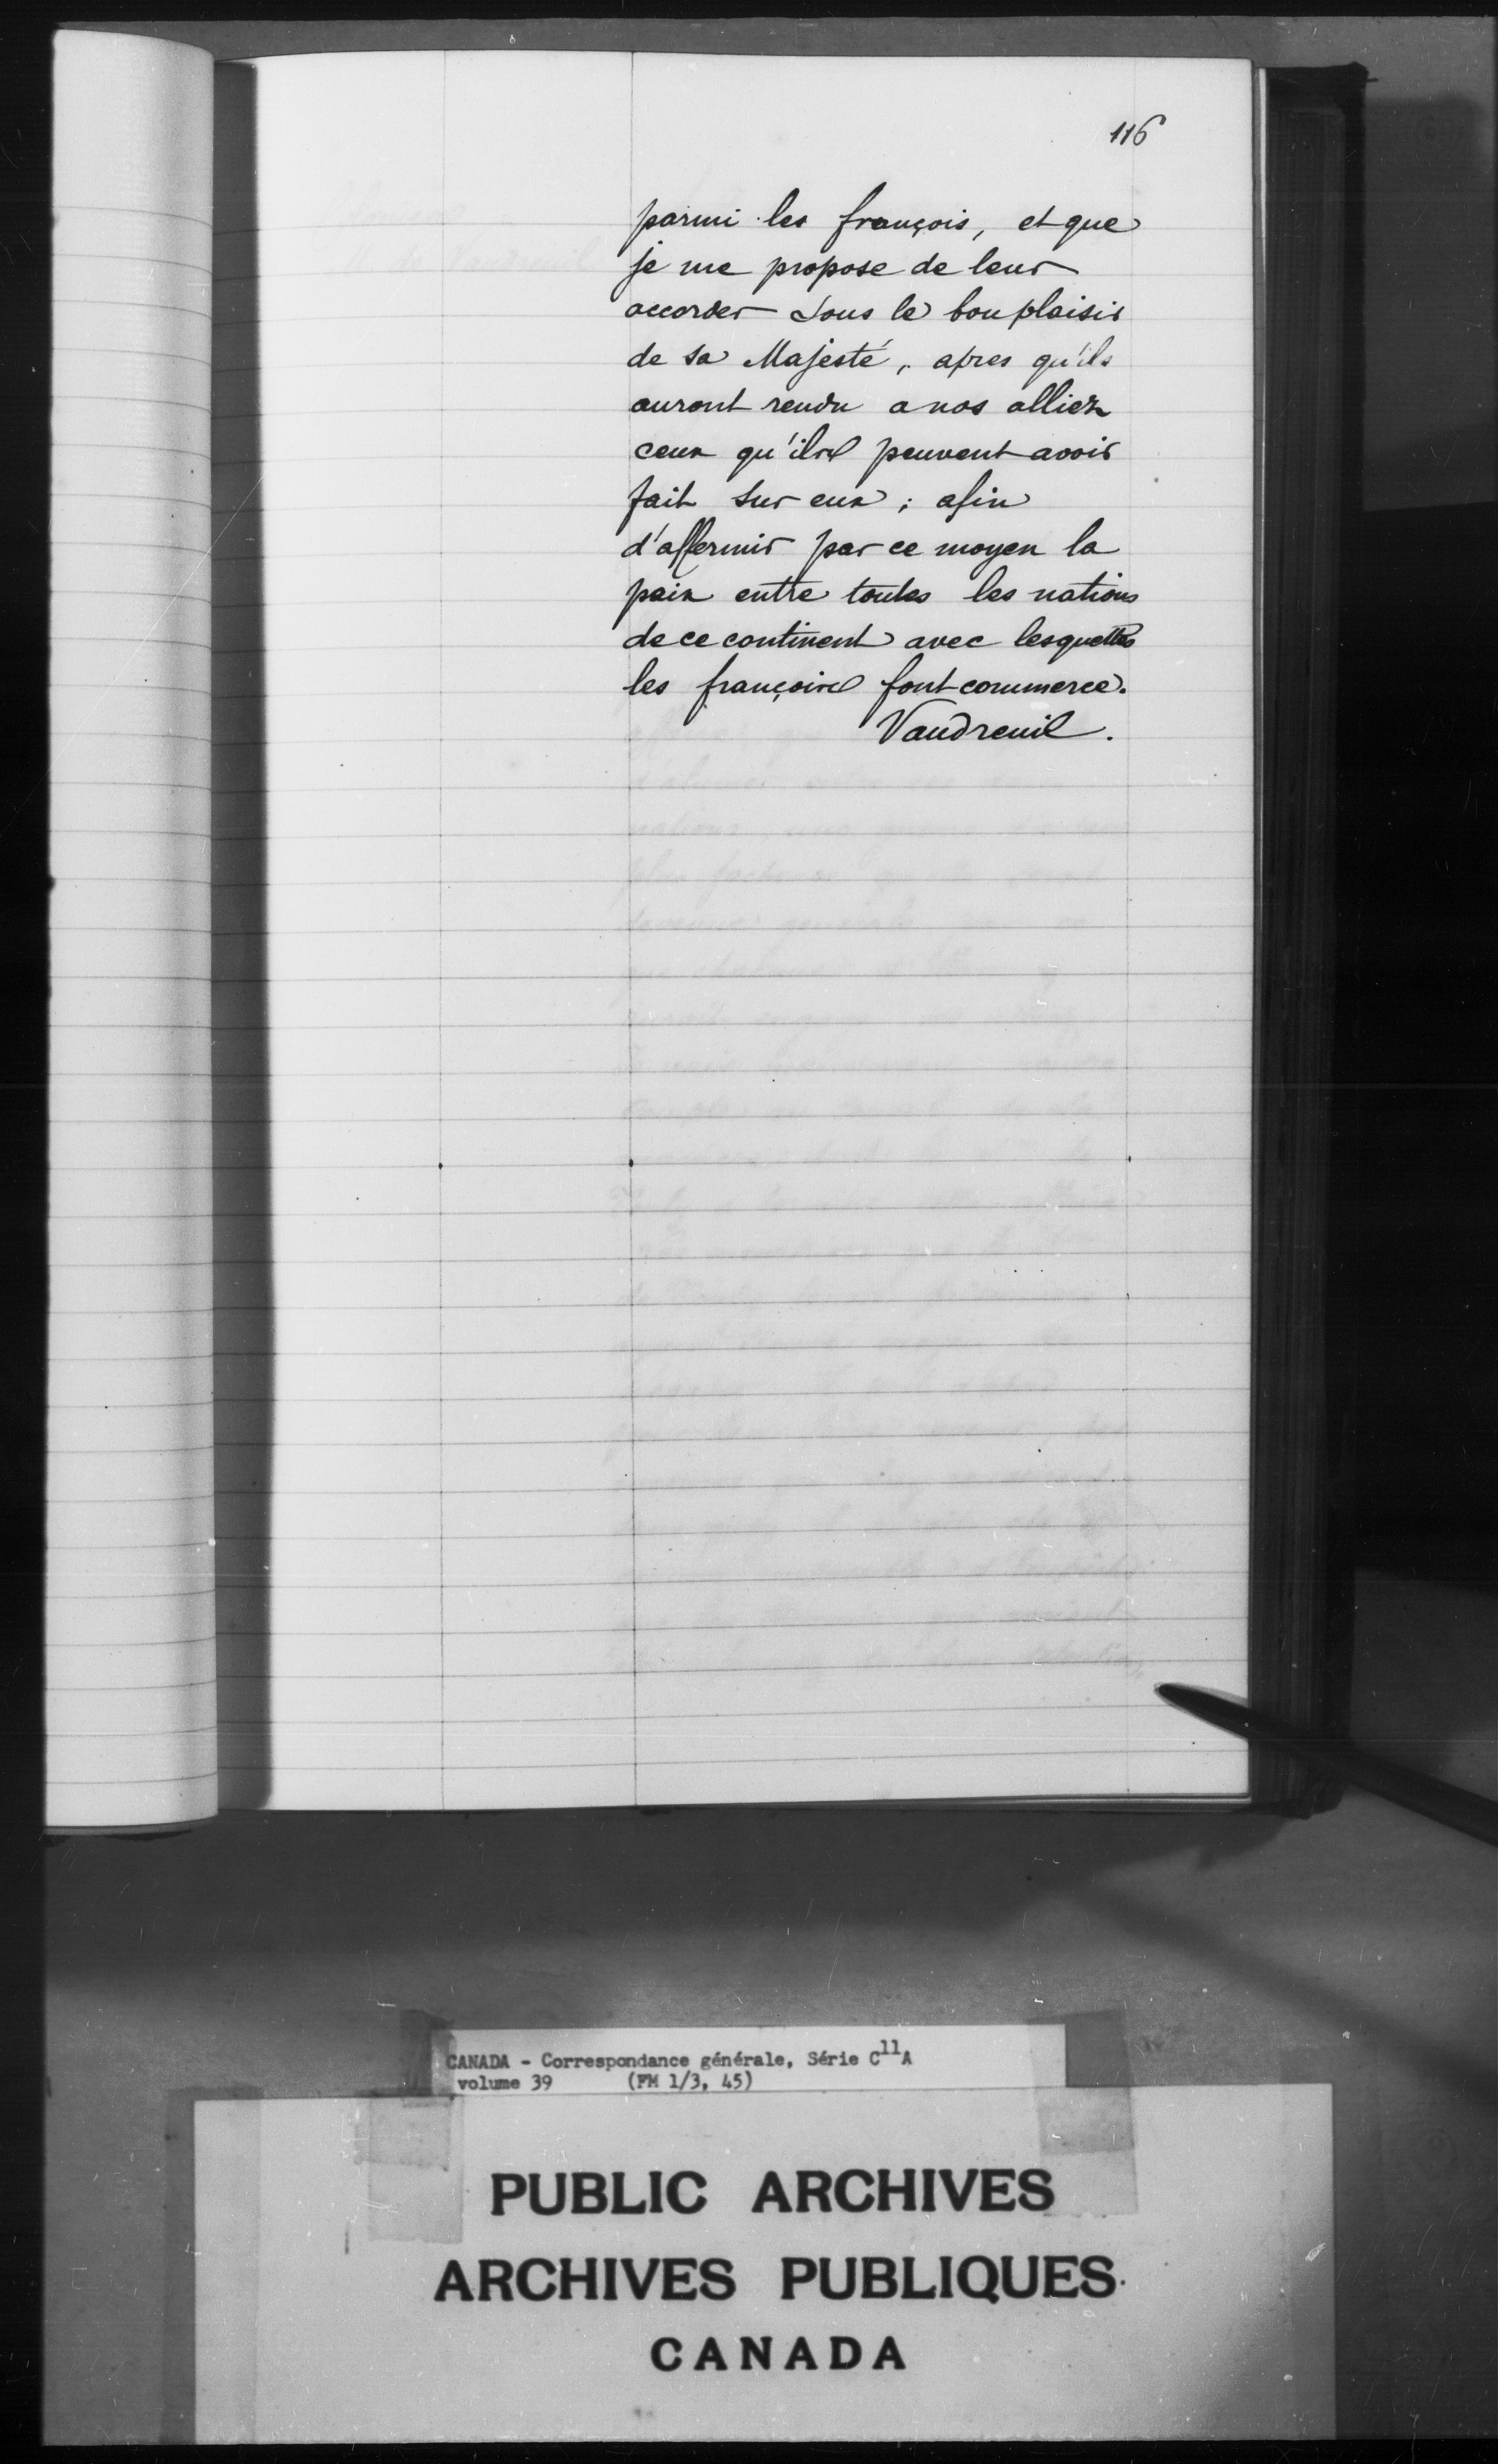 116
parmi les françois, et que
je me propose de leur
accorder sous le bon plaisir
de sa Majesté, apres qu'ils
auront rendu a nos alliez
ceux qu'ils peuvent avoir
fait sur eux ; afin
d'affermir par ce moyen la
paix entre toutes les nations
de ce continent avec lesquelles
les françois font commerce.
Vaudreuil.
CANADA - Correspondance générale, Série C11A
volume 39 (FM 1/3, 45)
PUBLIC ARCHIVES
ARCHIVES PUBLIQUES
CANADA